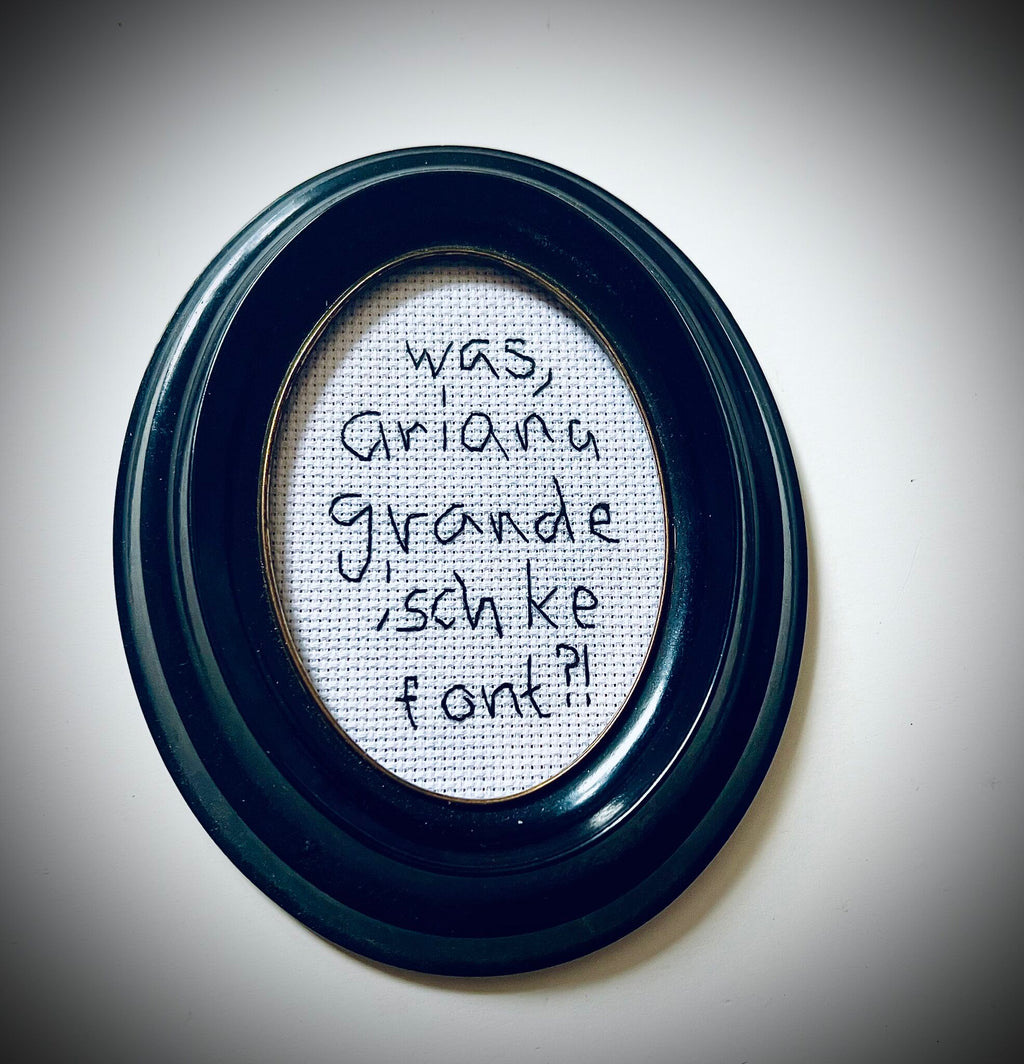 was,
ariana
grande
,schke
font?!